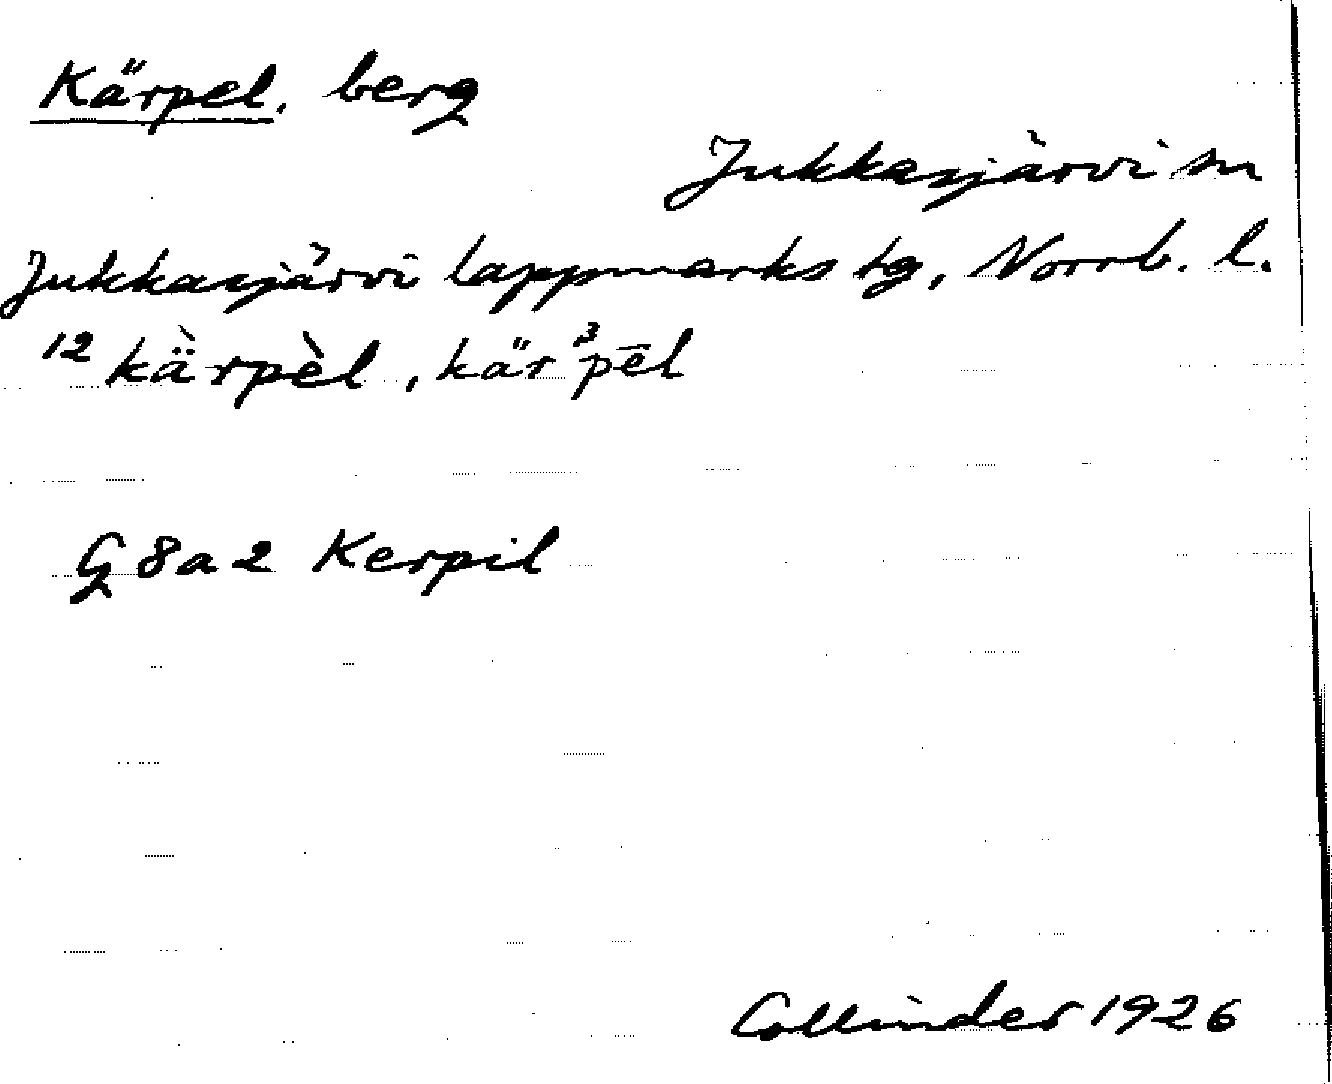 Kärpel, berg
Jukkasjärvi sn
Jukkasjärvi lappmarks tg, Norrb. l.
12 kä̀rpèl, kär³pēl
G 8 a 2 Kerpil
Collinder 1926